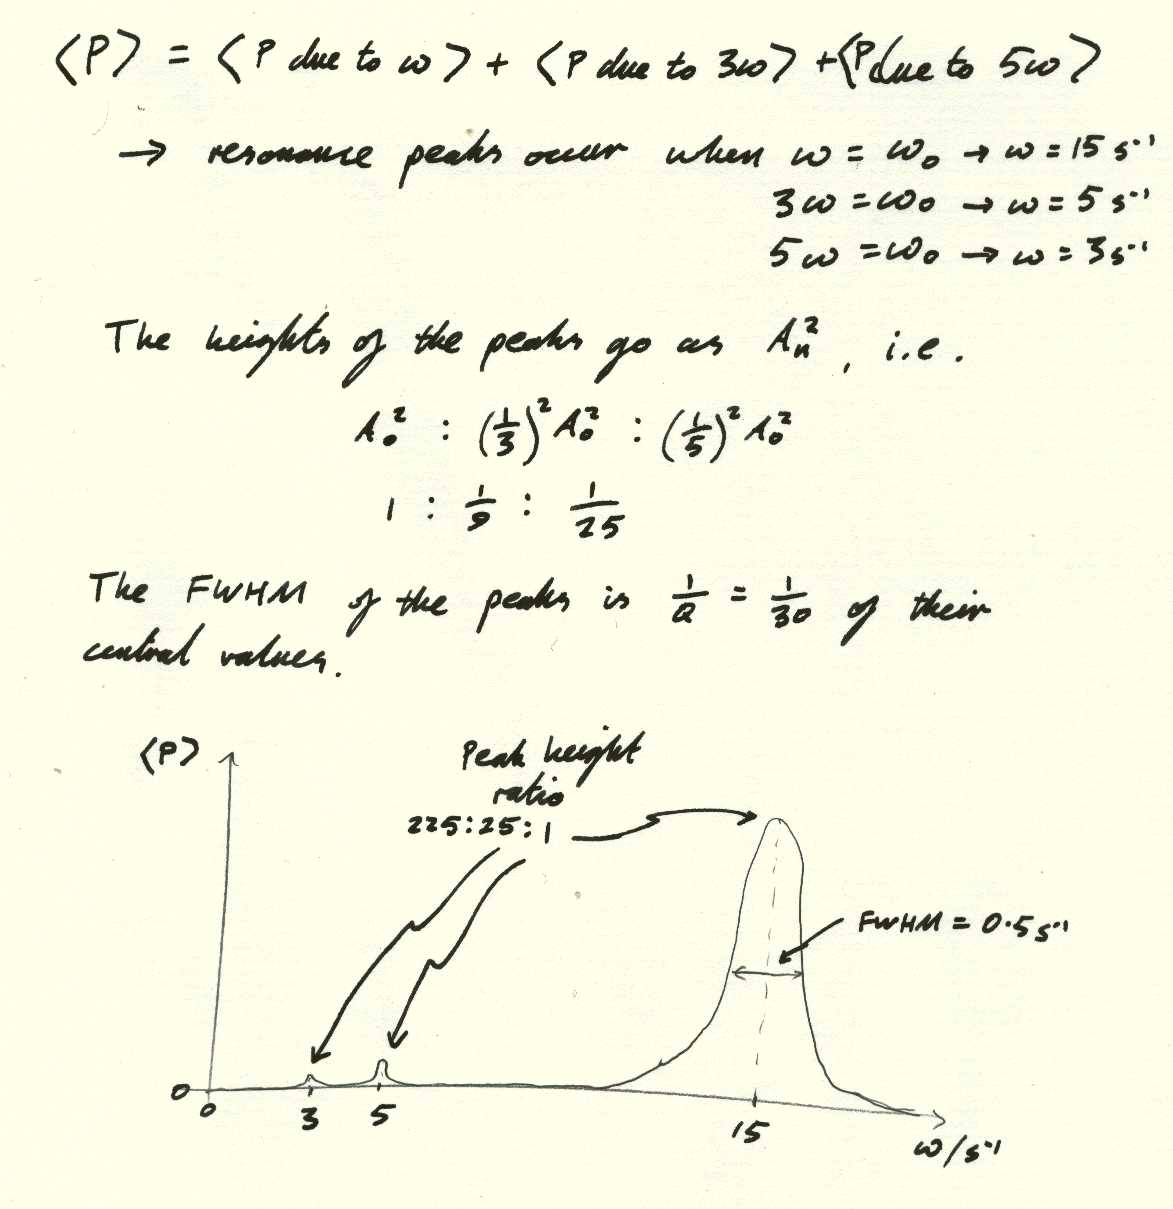 ⟨P⟩ = ⟨P due to ω⟩ + ⟨P due to 3ω⟩ + ⟨P due to 5ω⟩
→ resonance peaks occur when ω = ω₀ → ω = 15 s⁻¹
3ω = ω₀ → ω = 5 s⁻¹
5ω = ω₀ → ω = 3 s⁻¹
The heights of the peaks go as Aₙ², i.e.
A₀² : (1/3)² A₀² : (1/5)² A₀²
1 : 1/9 : 1/25
The FWHM of the peaks is 1/Q = 1/30 of their
central values.
⟨P⟩
Peak height
ratio
225:25:1
FWHM = 0.5 s⁻¹
0
0
3
5
15
ω/s⁻¹